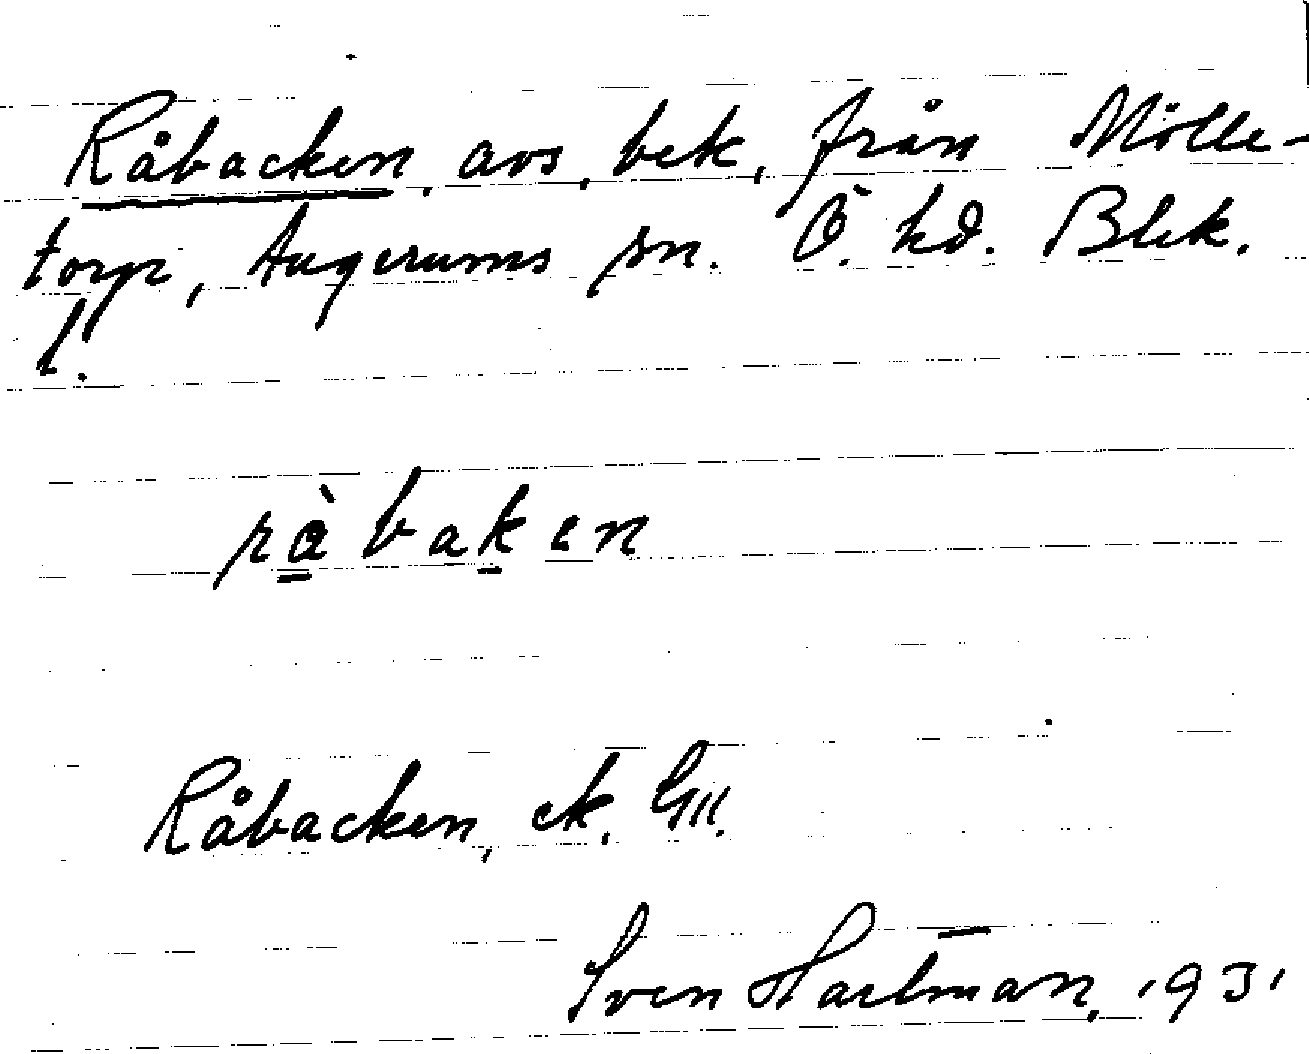 Råbacken, avs, bek, från Mölle-
torp, Augerums sn. Ö. hd. Blek.
l.
råbaken
Råbacken, ek.
Sven Hartman, 1931